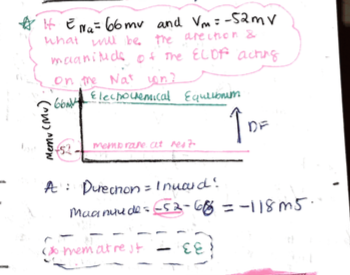 If E Na = 66mv and Vm = -52mv
What will be the direction &
magnitude of the ECDF acting
on the Na+ ion?
Electrochemical Equilibrium
66mV
Memv (Mv)
↑ DF
-52
membrane at rest
A: Direction = Inward!
Magnitude = -52-66 = -118 m5.
mem at rest - EE